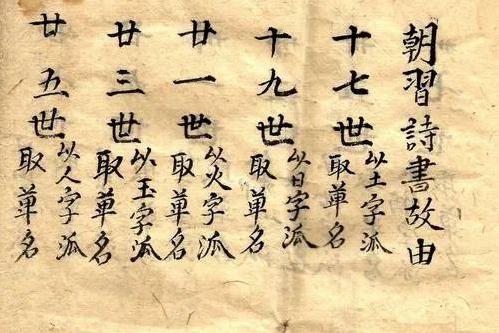 朝習詩書故由
十七世以土字派取單名
十九世以日字派取單名
廿一世以火字派取單名
廿三世以玉字派取單名
廿五世以人字派取單名